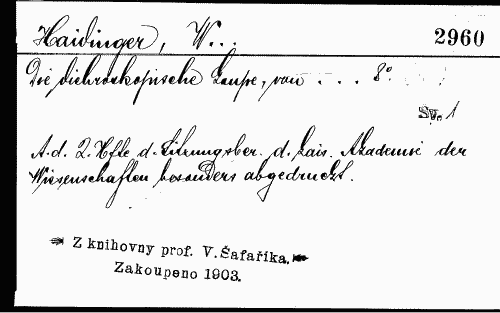 Haidinger, W...
2960
Die dichroskopische Loupe, von . . . 8°
Sv. 1
A. d. 2. Hfte d. Sitzungsber. d. kais. Akademie der
Wissenschaften besonders abgedruckt.
Z knihovny prof. V. Šafaříka.
Zakoupeno 1903.